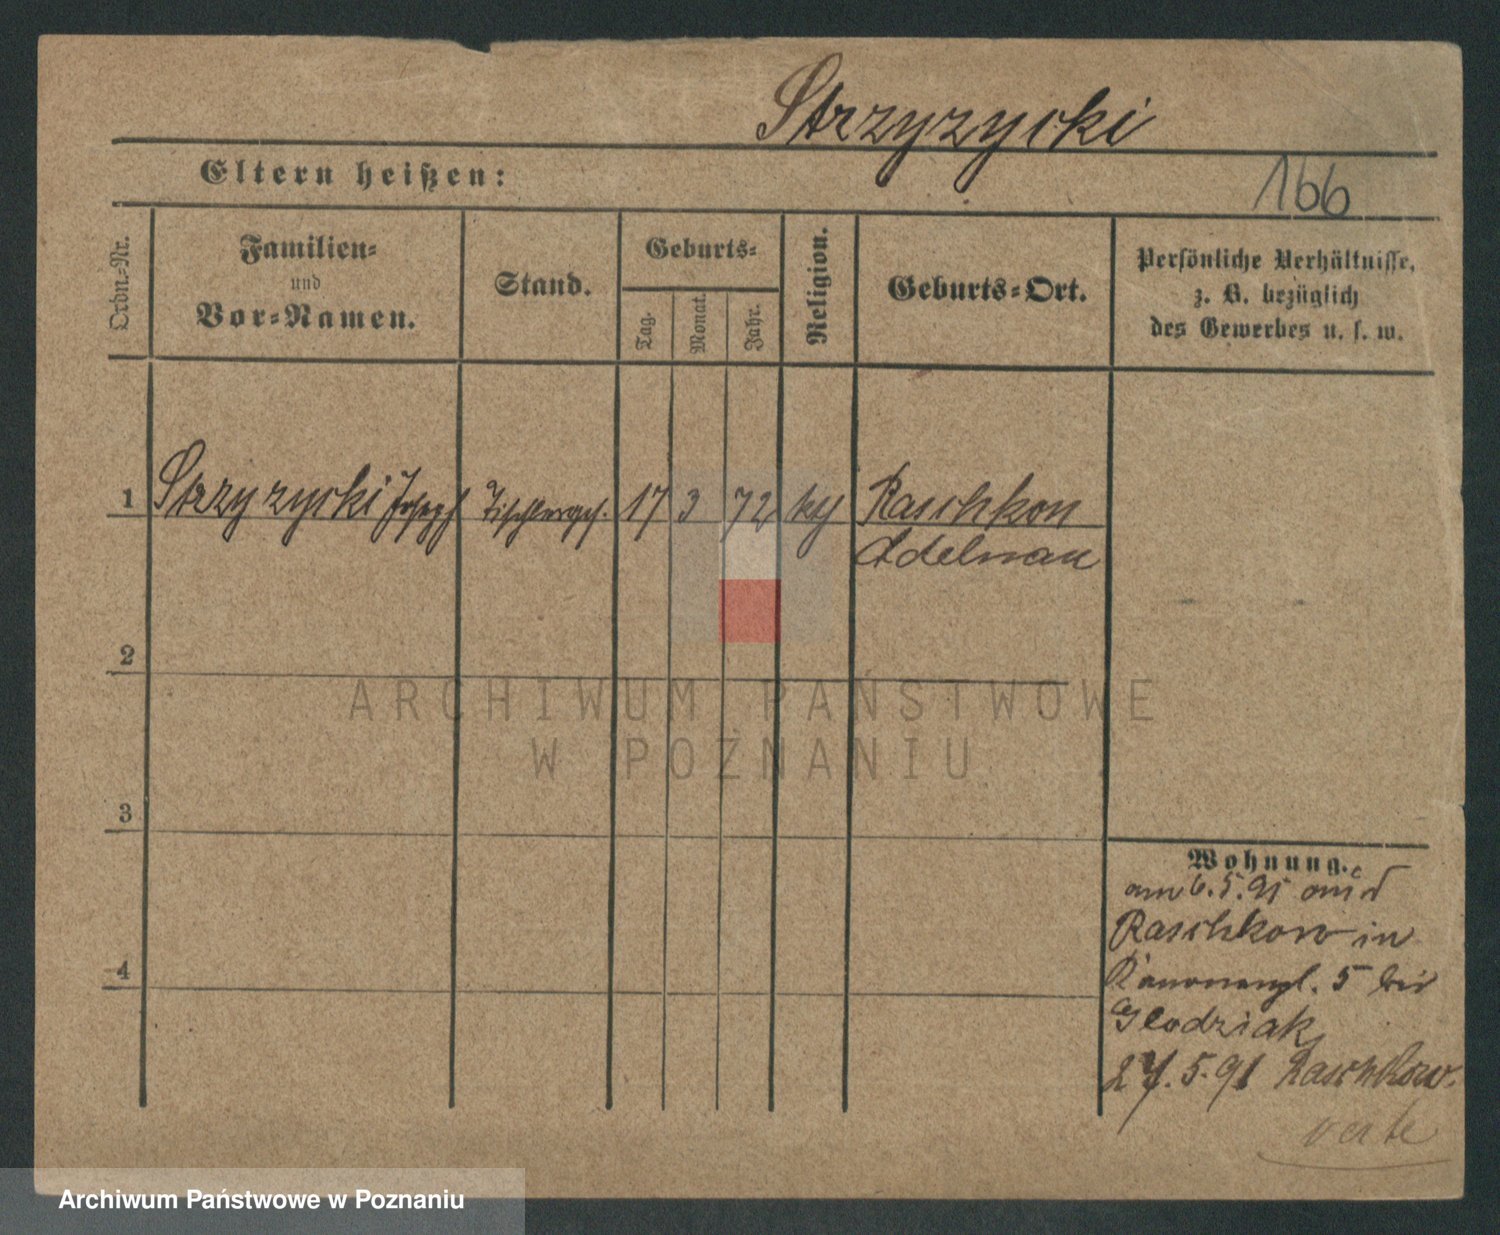 Strzyzycki
Eltern heißen:
166
Ordn.-Nr.
Familien-
und
Vor-Namen.
Stand.
Geburts-
Tag.
Monat.
Jahr.
Religion.
Geburts-Ort.
Persönliche Verhältnisse,
z. B. bezüglich
des Gewerbes u. s. w.
1 Strzyzycki Joseph Tischlerges. 17 3 72 Raschkow
Adelnau
2
ARCHIWUM PAŃSTWOWE
W POZNANIU
3
Wohnung.
am 6.5.91
Raschkow in
Kanonenpl. 5 bei
Glodziak
27.5.91 Raschkow.
4
verte
Archiwum Państwowe w Poznaniu